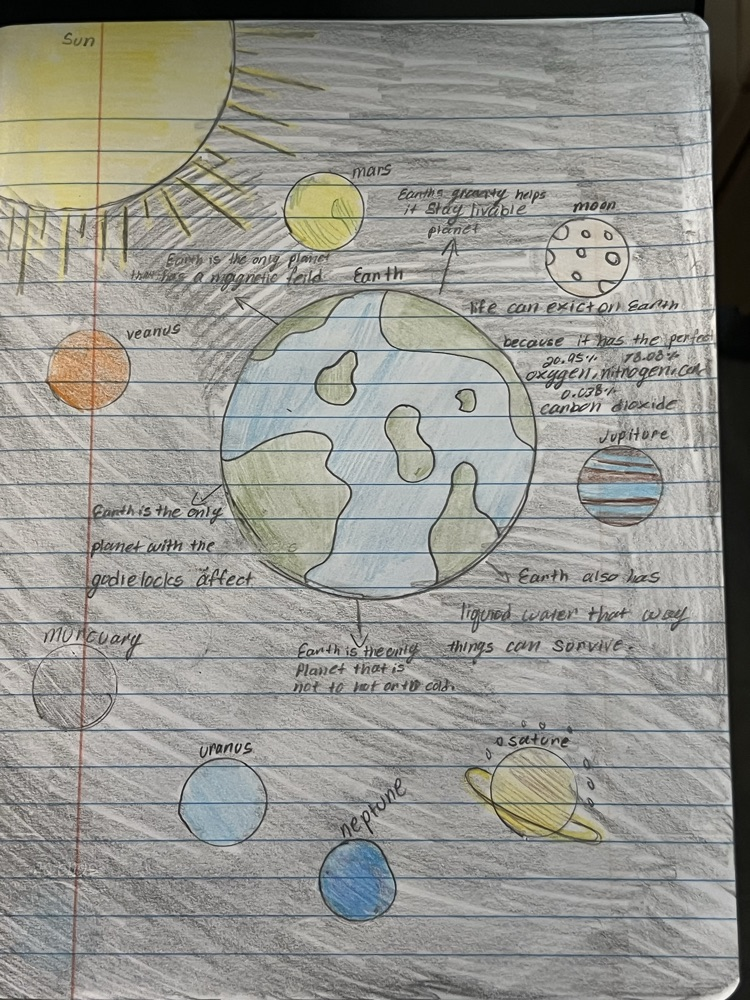 Sun
mars
Earths gravity helps
it stay livable
planet
moon
Earth is the only planet
that has a magnetic feild
Earth
life can exict on Earth
because it has the perfect
20.95% 78.08%
oxygen, nitrogen,
0.038%
canbon dioxide
veanus
Jupiture
Earth is the only
planet with the
godielocks affect
Earth also has
liquid water that way
things can sorvive.
murcuary
Earth is the only
Planet that is
not to hot or to cold.
uranus
neptune
sature